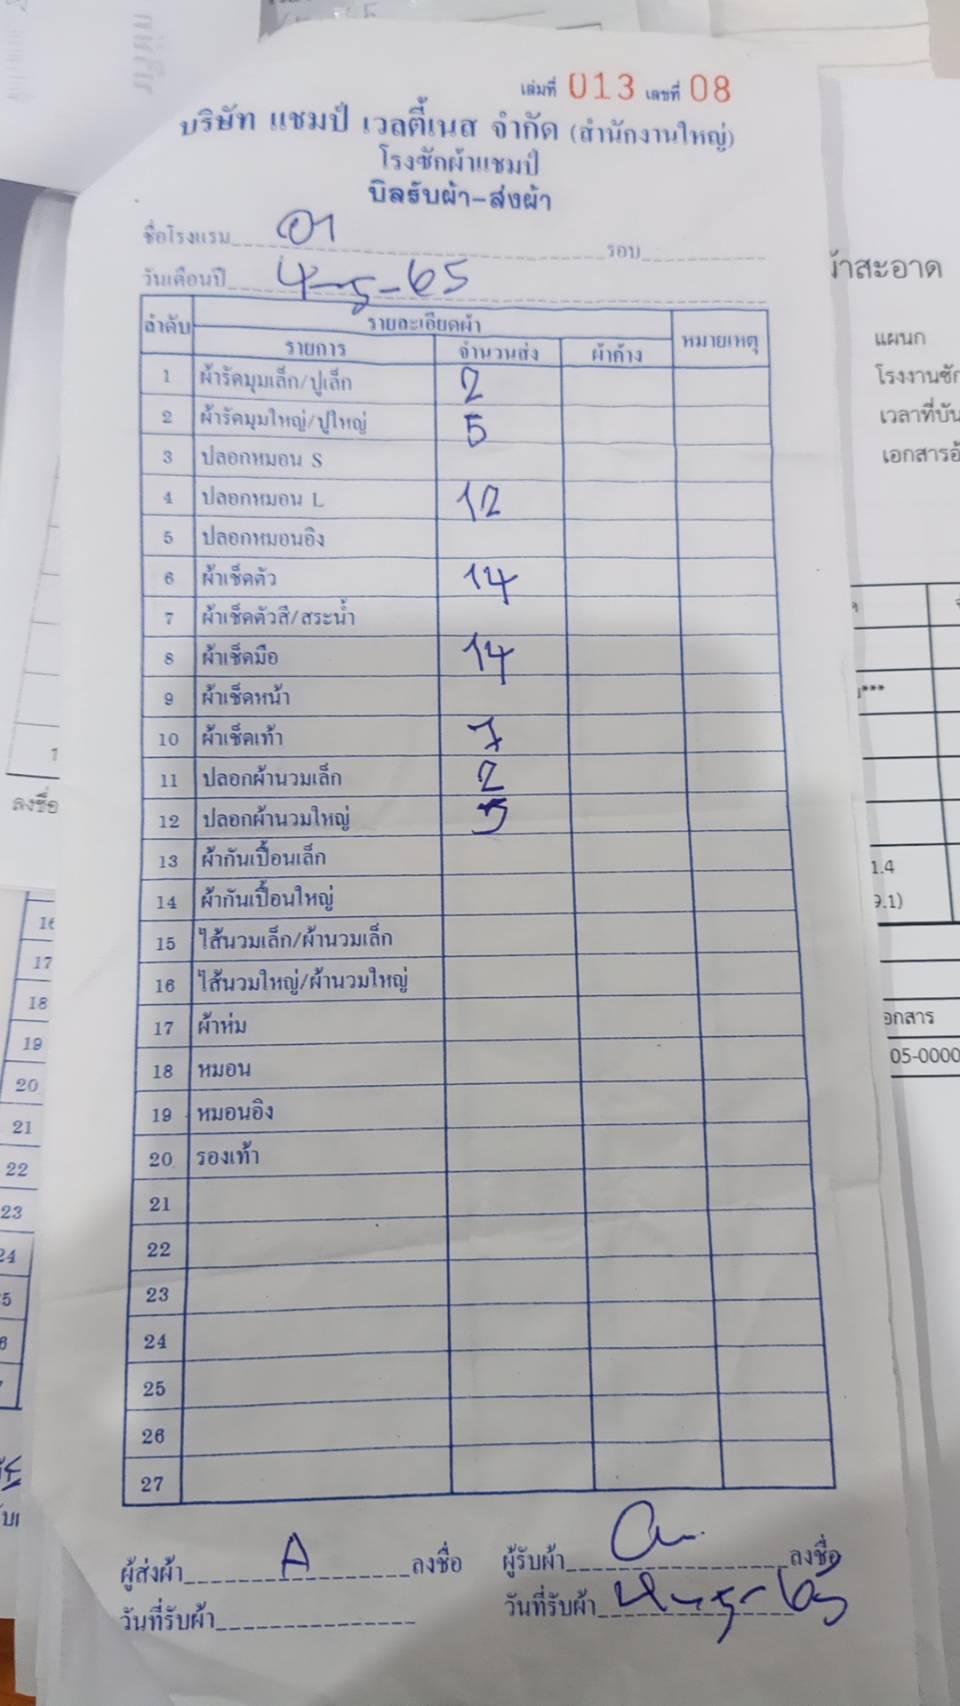 เล่มที่ 013 เลขที่ 08
บริษัท แชมป์ เวลตี้เนส จำกัด (สำนักงานใหญ่)
โรงซักผ้าแชมป์
บิลรับผ้า-ส่งผ้า
ชื่อโรงแรม รอบ
วันเดือนปี 4-5-65
ลำดับ รายละเอียดผ้า หมายเหตุ
รายการ จำนวนส่ง ผ้าค้าง
1 ผ้ารัดมุมเล็ก/ปูเล็ก 2
2 ผ้ารัดมุมใหญ่/ปูใหญ่ 5
3 ปลอกหมอน S
4 ปลอกหมอน L 12
5 ปลอกหมอนอิง
6 ผ้าเช็ดตัว 14
7 ผ้าเช็ดตัวสี/สระน้ำ
8 ผ้าเช็ดมือ 14
9 ผ้าเช็ดหน้า
10 ผ้าเช็ดเท้า 7
11 ปลอกผ้านวมเล็ก 2
12 ปลอกผ้านวมใหญ่ 5
13 ผ้ากันเปื้อนเล็ก
14 ผ้ากันเปื้อนใหญ่
15 ไส้นวมเล็ก/ผ้านวมเล็ก
16 ไส้นวมใหญ่/ผ้านวมใหญ่
17 ผ้าห่ม
18 หมอน
19 หมอนอิง
20 รองเท้า
21
22
23
24
25
26
27
ผู้ส่งผ้า A ลงชื่อ ผู้รับผ้า ลงชื่อ
วันที่รับผ้า วันที่รับผ้า 4-5-65
แผนก
เอกสารอ้
1.4
9.1)
05-0000
ลงชื่อ
16
17
18
19
20
21
22
23